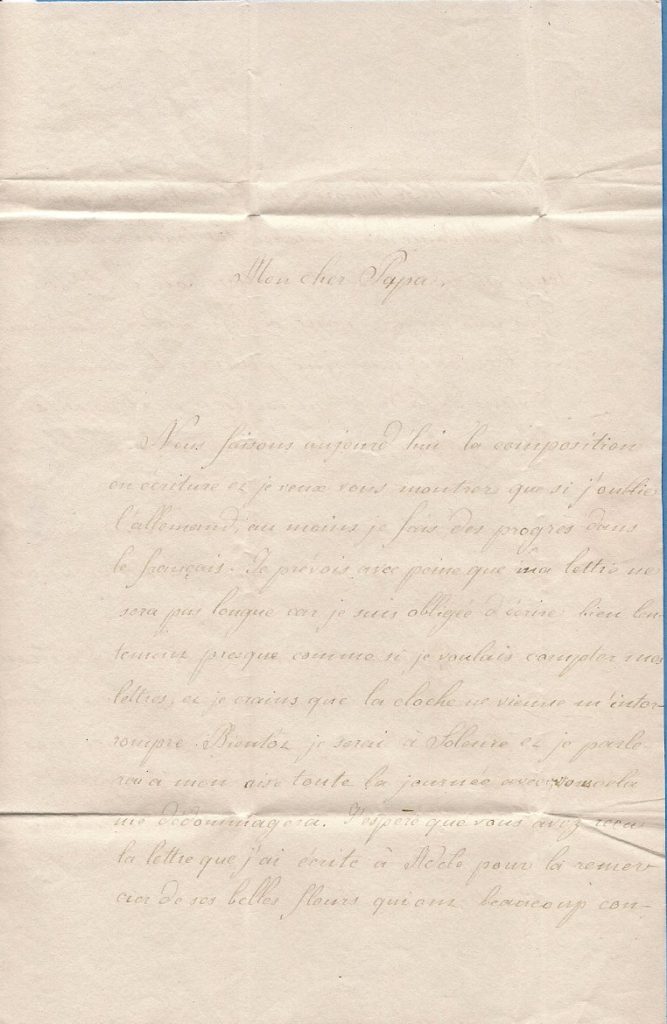 Mon cher Papa,
Nous faisons aujourd'hui la composition
en écriture et je veux vous montrer que si j'oublie
l'allemand, au moins je fais des progrès dans
le français. Je prévois avec peine que ma lettre ne
sera pas longue car je suis obligée d'écrire bien len-
tement presque comme si je voulais compter mes
lettres, et je crains que la cloche ne vienne m'inter-
rompre. Bientôt je serai à Soleure et je parle-
rai à mon aise toute la journée avec vous cela
me dédommagera. J'espère que vous avez reçu
la lettre que j'ai écrite à Adèle pour la remer-
cier de ses belles fleurs qui ont beaucoup con-